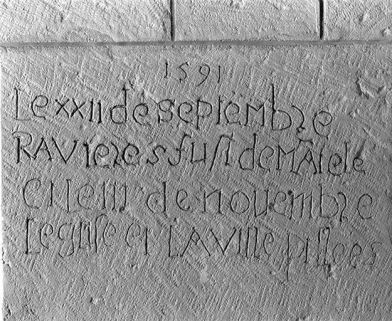 1591
Le xxii de septembre
RAVieres fust demAtele
e Lle iii de novembre
Leglise et LAville pillees